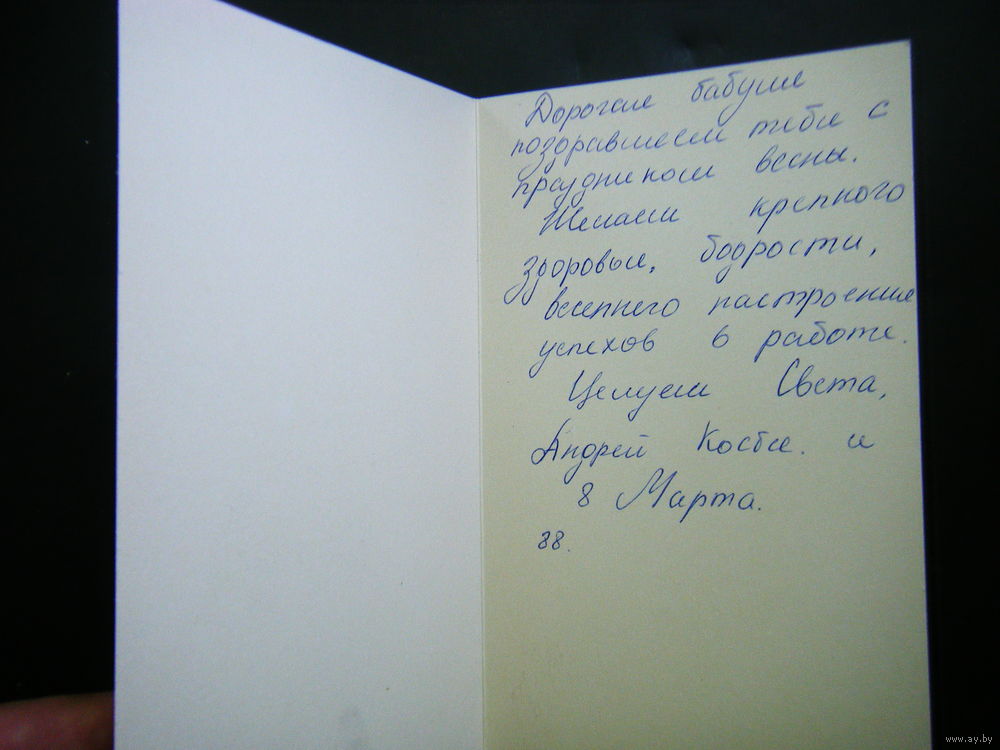 Дорогая бабуля
поздравляем тебя с
праздником весны.
Желаем крепкого
здоровья, бодрости,
весеннего настроения
успехов в работе.
Целуем Света,
Андрей Костя. и
8 Марта.
88.
www.ay.by